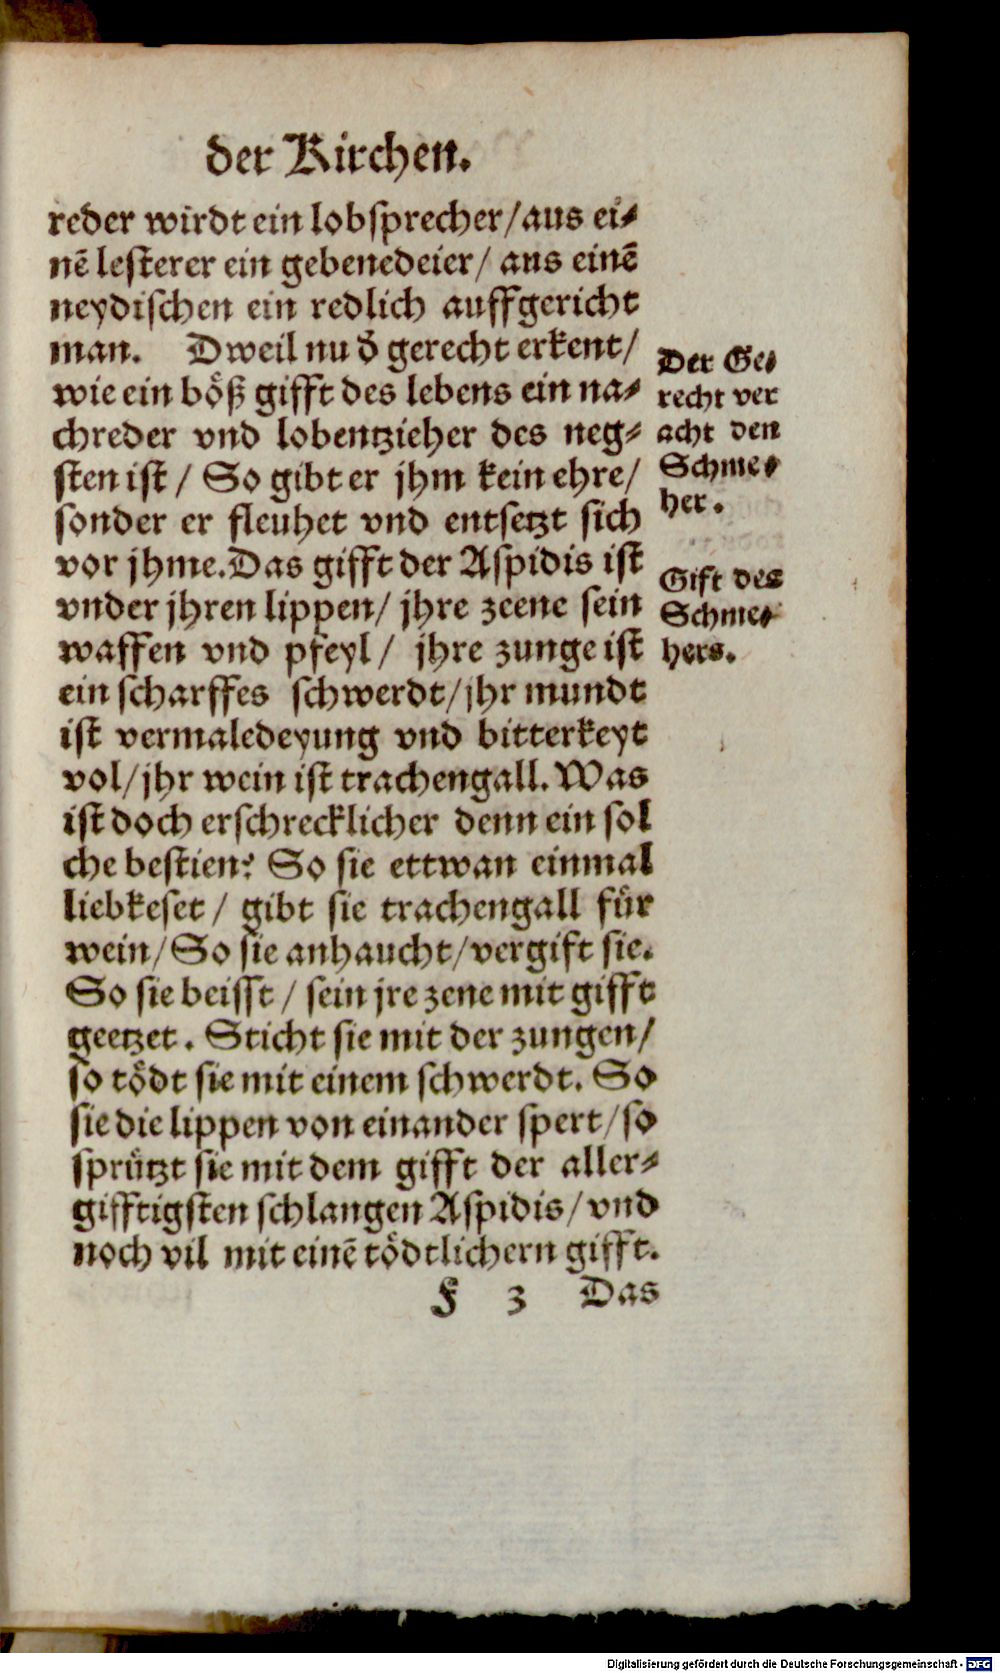 der Kirchen.
reder wirdt ein lobsprecher/aus ei-
nē lesterer ein gebenedeier/ aus einē
neydischen ein redlich auffgericht
man. Dweil nu d̄ gerecht erkent/
wie ein böß gifft des lebens ein na-
chreder vnd lobentzieher des neg-
sten ist / So gibt er jhm kein ehre/
sonder er fleuhet vnd entsetzt sich
vor jhme. Das gifft der Aspidis ist
vnder jhren lippen/ jhre zeene sein
waffen vnd pfeyl/ jhre zunge ist
ein scharffes schwerdt/jhr mundt
ist vermaledeyung vnd bitterkeyt
vol/jhr wein ist trachengall. Was
ist doch erschrecklicher denn ein sol
che bestien? So sie ettwan einmal
liebkeset/ gibt sie trachengall für
wein/So sie anhaucht/vergift sie.
So sie beisst / sein jre zene mit gifft
geetzet. Sticht sie mit der zungen/
so tödt sie mit einem schwerdt. So
sie die lippen von einander spert/so
sprützt sie mit dem gifft der aller-
gifftigsten schlangen Aspidis/ vnd
noch vil mit einē tödtlichern gifft.
F 3 Das
Der Ge-
recht ver
acht den
Schme-
her.
Gift des
Schme-
hers.
Digitalisierung gefördert durch die Deutsche Forschungsgemeinschaft - DFG